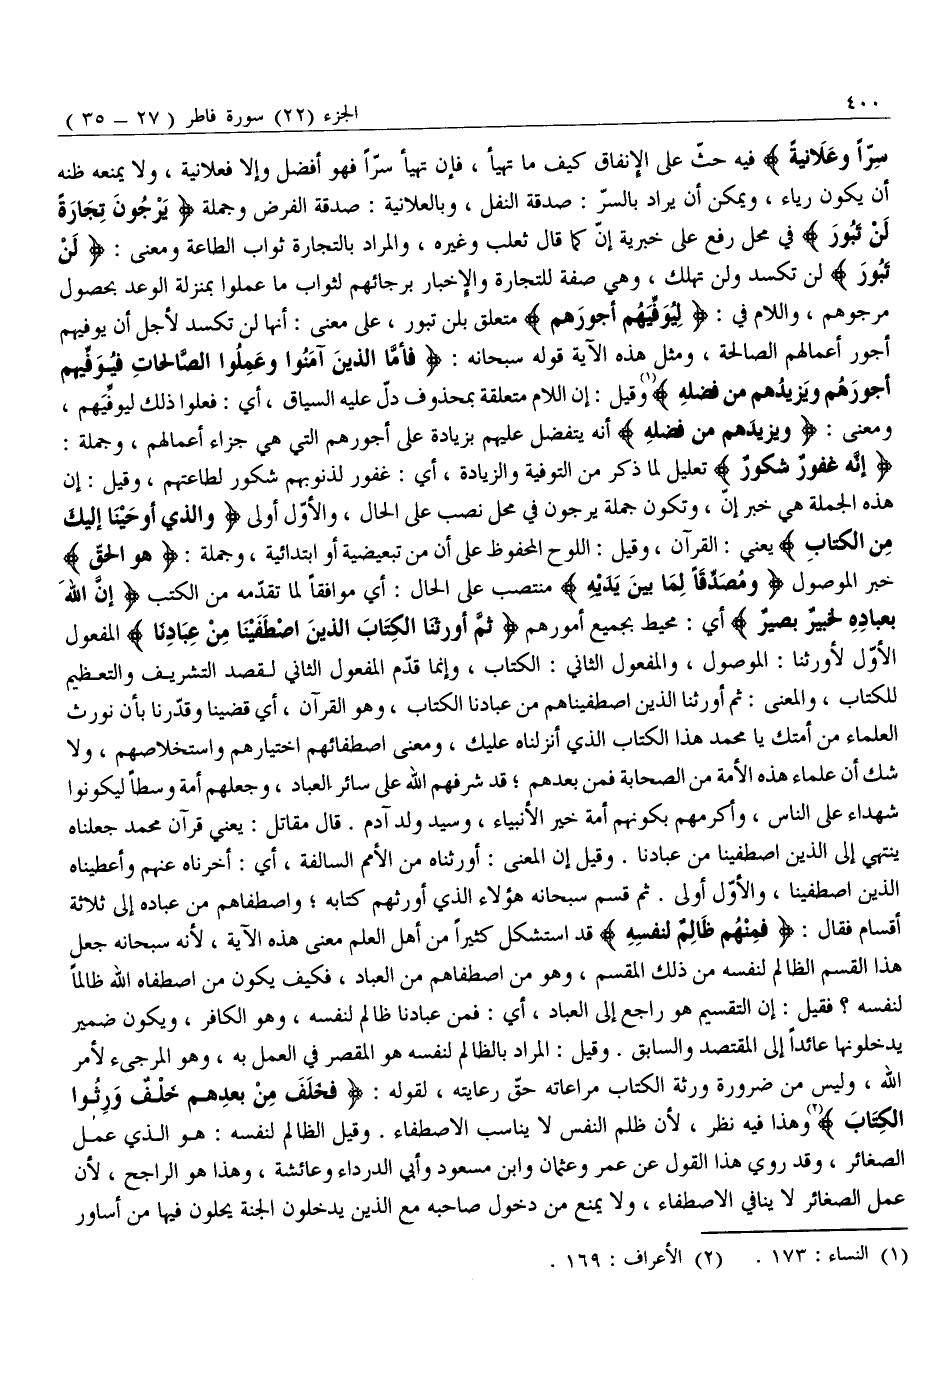 ٤٠٠
الجزء (٢٢) سورة فاطر ( ٢٧ – ٣٥ )
سِرّاً وعَلَانيةً ﴾ فيه حثّ على الإنفاق كيف ما تهيأ ، فإن تهيأ سرّاً فهو أفضل وإلا فعلانية ، ولا يمنعه ظنه
أن يكون رياء ، ويمكن أن يراد بالسرّ : صدقة النفل ، وبالعلانية : صدقة الفرض وجملة ﴿ يَرْجُونَ تِجَارَةً
لَنْ تَبُورَ ﴾ في محل رفع على خبرية إنّ كما قال ثعلب وغيره ، والمراد بالتجارة ثواب الطاعة ومعنى : ﴿ لَنْ
تَبُورَ ﴾ لن تكسد ولن تهلك ، وهي صفة للتجارة والإخبار برجائهم لثواب ما عملوا بمنزلة الوعد بحصول
مرجوهم ، واللام في : ﴿ لِيُوَفِّيَهُم أجورَهم ﴾ متعلق بلن تبور ، على معنى : أنها لن تكسد لأجل أن يوفيهم
أجور أعمالهم الصالحة ، ومثل هذه الآية قوله سبحانه : ﴿ فأمَّا الذينَ آمَنُوا وعَمِلُوا الصَّالحَاتِ فيُوَفِّيهم
أجورَهُم ويَزيدُهم من فضلهِ ﴾(١) وقيل : إن اللام متعلقة بمحذوف دلّ عليه السياق ، أي : فعلوا ذلك ليوفّيَهم ،
ومعنى : ﴿ ويزيدَهم من فضلهِ ﴾ أنه يتفضل عليهم بزيادة على أجورهم التي هي جزاء أعمالهم ، وجملة :
﴿ إنَّه غفورٌ شكورٌ ﴾ تعليل لما ذكر من التوفية والزيادة ، أي : غفور لذنوبهم شكور لطاعتهم ، وقيل : إن
هذه الجملة هي خبر إنّ ، وتكون جملة يرجون في محل نصب على الحال ، والأوّل أولى ﴿ والذي أوحَيْنَا إليكَ
مِن الكتابِ ﴾ يعني : القرآن ، وقيل : اللوح المحفوظ على أن من تبعيضية أو ابتدائية ، وجملة : ﴿ هو الحَقّ ﴾
خبر الموصول ﴿ ومُصَدِّقَاً لِمَا بينَ يَدَيْهِ ﴾ منتصب على الحال : أي موافقاً لما تقدّمه من الكتب ﴿ إنَّ اللهَ
بعبادِهِ لخبيرٌ بصيرٌ ﴾ أي : محيط بجميع أمورهم ﴿ ثمَّ أورثنَا الكتَابَ الذينَ اصْطَفَيْنَا مِنْ عِبَادِنَا ﴾ المفعول
الأوّل لأورثنا : الموصول ، والمفعول الثاني : الكتاب ، وإنما قدّم المفعول الثاني لقصد التشريف والتعظيم
للكتاب ، والمعنى : ثم أورثنا الذين اصطفيناهم من عبادنا الكتاب ، وهو القرآن ، أي قضينا وقدّرنا بأن نورث
العلماء من أمتك يا محمد هذا الكتاب الذي أنزلناه عليك ، ومعنى اصطفائهم اختيارهم واستخلاصهم ، ولا
شك أن علماء هذه الأمة من الصحابة فمن بعدهم ؛ قد شرفهم الله على سائر العباد ، وجعلهم أمة وسطاً ليكونوا
شهداء على الناس ، وأكرمهم بكونهم أمة خير الأنبياء ، وسيد ولد آدم . قال مقاتل : يعني قرآن محمد جعلناه
ينتهي إلى الذين اصطفينا من عبادنا . وقيل إن المعنى : أورثناه من الأمم السالفة ، أي : أخرناه عنهم وأعطيناه
الذين اصطفينا ، والأوّل أولى . ثم قسم سبحانه هؤلاء الذي أورثهم كتابه ؛ واصطفاهم من عباده إلى ثلاثة
أقسام فقال : ﴿ فمِنْهُم ظَالِمٌ لنفسِهِ ﴾ قد استشكل كثيراً من أهل العلم معنى هذه الآية ، لأنه سبحانه جعل
هذا القسم الظالم لنفسه من ذلك المقسم ، وهو من اصطفاهم من العباد ، فكيف يكون من اصطفاه الله ظالماً
لنفسه ؟ فقيل : إن التقسيم هو راجع إلى العباد ، أي : فمن عبادنا ظالم لنفسه ، وهو الكافر ، ويكون ضمير
يدخلونها عائداً إلى المقتصد والسابق . وقيل : المراد بالظالم لنفسه هو المقصر في العمل به ، وهو المرجىء لأمر
الله ، وليس من ضرورة ورثة الكتاب مراعاته حقّ رعايته ، لقوله : ﴿ فخَلَفَ مِنْ بعدِهم خَلْفٌ وَرِثُوا
الكِتَابَ ﴾(٢) وهذا فيه نظر ، لأن ظلم النفس لا يناسب الاصطفاء . وقيل الظالم لنفسه : هو الذي عمل
الصغائر ، وقد روي هذا القول عن عمر وعثمان وابن مسعود وأبي الدرداء وعائشة ، وهذا هو الراجح ، لأن
عمل الصغائر لا ينافي الاصطفاء ، ولا يمنع من دخول صاحبه مع الذين يدخلون الجنة يحلون فيها من أساور
(١) النساء : ١٧٣ . (٢) الأعراف : ١٦٩ .